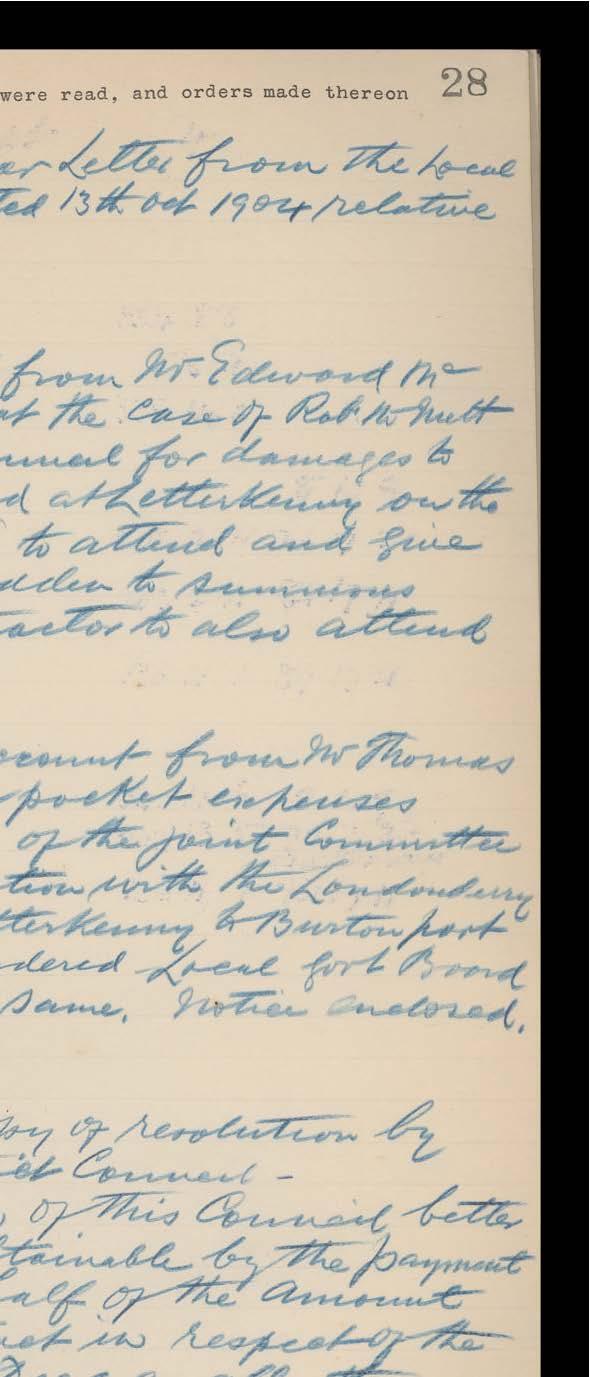 were read, and orders made thereon 28
Letter from the Local
13th Oct 1904 relative
from Mr. Edward Mc
the case of Robt Mc Nutt
for damages to
at Letterkenny on the
to attend and give
to summons
to also attend
from Mr Thomas
pocket expenses
of the joint Committee
with the Londonderry
to Burton port
Local Govt Board
same. Notice enclosed.
of resolution by
Council -
of this Council better
by the payment
of the amount
in respect of the